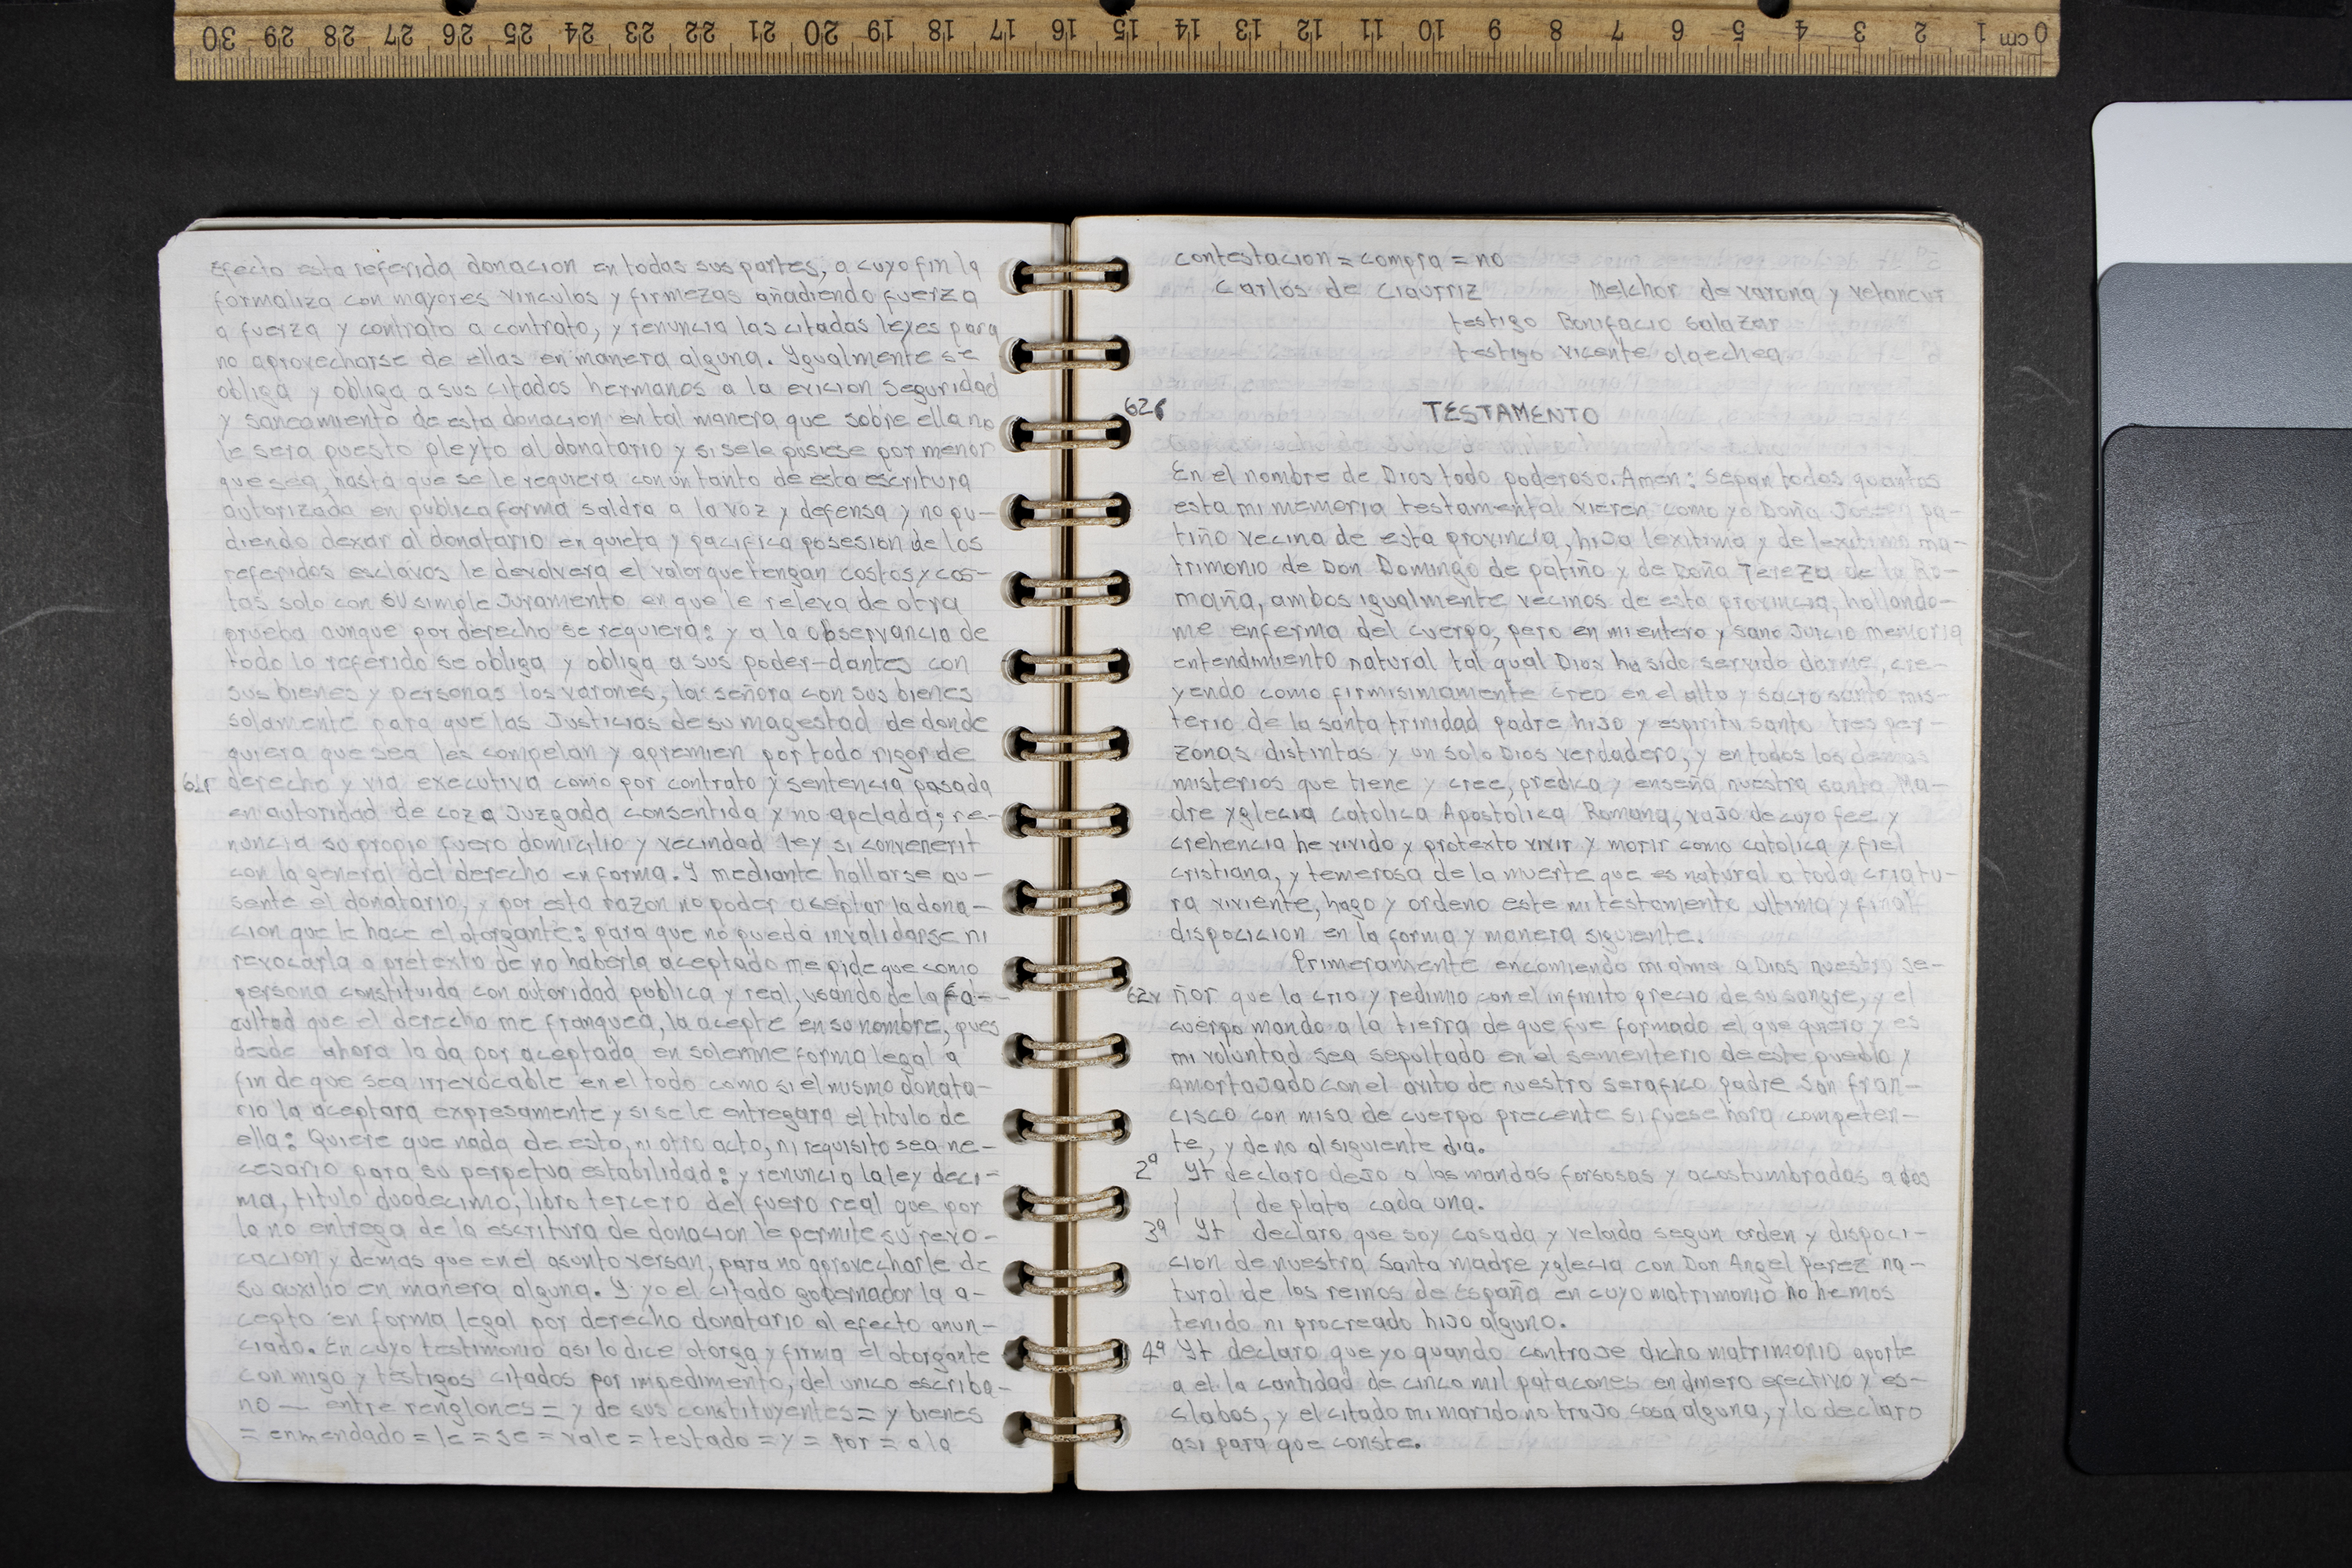 30 29 28 27 26 25 24 23 22 21 20 19 18 17 16 15 14 13 12 11 10 9 8 7 6 5 4 3 2 1 cm 0
Efecto esta referida donacion en todas sus partes, a cuyo fin la
formaliza con mayores vinculos y firmezas añadiendo fuerza
a fuerza y contrato a contrato, y renuncia las citadas leyes para
no aprovecharse de ellas en manera alguna. Ygualmente se
obliga y obliga a sus citados hermanos a la evicion seguridad
y saneamiento de esta donacion en tal manera que sobre ella no
le sera puesto pleyto al donatario y si se le pusiese por menor
que sea, hasta que se le requiera con un tanto de esta escritura
autorizada en publica forma saldra a la voz y defensa y no pu-
diendo dexar al donatario en quieta y pacifica posesion de los
referidos esclavos le devolvera el valor que tengan costos y cos-
tas solo con su simple Juramento en que le releva de otra
prueba aunque por derecho se requiera: y a la observancia de
todo lo referido se obliga y obliga a sus poder-dantes con
sus bienes y personas los varones, la señora con sus bienes
solamente para que las Justicias de su magestad de donde
quiera que sea les compelan y apremien por todo rigor de
61r derecho y via executiva como por contrato y sentencia pasada
en autoridad de coza Juzgada consentida y no apelada; re-
nuncia su propio fuero domicilio y vecindad ley si convenerit
con la general del derecho en forma. Y mediante hallarse au-
sente el donatario, y por esta razon no poder aceptar la dona-
cion que le hace el otorgante: para que no pueda invalidarse ni
revocarla a pretexto de no haberla aceptado me pide que como
persona constituida con autoridad publica y real, usando de la fa-
cultad que el derecho me franquea, la acepte en su nombre, pues
desde ahora la da por aceptada en solemne forma legal a
fin de que sea irrevocable en el todo como si el mismo donata-
rio la aceptara expresamente y si se le entregara el titulo de
ella: Quiere que nada de esto, ni otro acto, ni requisito sea ne-
cesario para su perpetua estabilidad: y renuncia la ley deci-
ma, titulo duodecimo, libro tercero del fuero real que por
la no entrega de la escritura de donacion le permite su revo-
cacion y demas que en el asunto versan, para no aprovecharle de
su auxilio en manera alguna. Y yo el citado gobernador la a-
cepto en forma legal por derecho donatario al efecto anun-
ciado. En cuyo testimonio asi lo dice otorga y firma el otorgante
con migo y testigos citados por impedimento, del unico escriba-
no — entre renglones = y de sus constituyentes = y bienes
= enmendado = le = se = vale = testado = y = por = a la
contestacion = compra = no
Carlos de Ciaurriz Melchor de varona y vetancur
testigo Bonifacio Salazar
testigo vicente olaechea
62r TESTAMENTO
En el nombre de Dios todo poderoso. Amen: sepan todos quantos
esta mi memoria testamental vieren como yo Doña pa-
tiño vecina de esta provincia, hiJa lexitima y de lexitimo ma-
trimonio de Don Domingo de patiño y de Doña Tereza de la Ro-
maña, ambos igualmente vecinos de esta provincia, hallando-
me enferma del cuerpo, pero en mi entero y sano Juicio memoria
entendimiento natural tal qual Dios ha sido servido darme, cre-
yendo como firmisimamente creo en el alto y sacro santo mis-
terio de la santa trinidad padre hiJo y espiritu santo tres per-
zonas distintas y un solo Dios verdadero, y en todos los demas
misterios que tiene y cree, predica y enseña nuestra santa Ma-
dre yglecia catolica Apostolica Romana, vaJo de cuyo fee y
crehencia he vivido y protexto vivir y morir como catolica y fiel
cristiana, y temerosa de la muerte que es natural a toda criatu-
ra viviente, hago y ordeno este mi testamento ultima y final
dispocicion en la forma y manera siguiente.
Primeramente encomiendo mi alma a Dios nuestro se-
62v ñor que la crio y redimio con el infinito precio de su sangre, y el
cuerpo mando a la tierra de que fue formado el que quiero y es
mi voluntad sea sepultado en el sementerio de este pueblo y
amortaJado con el avito de nuestro serafico padre San fran-
cisco con misa de cuerpo precente si fuese hora competen-
te, y de no al siguiente dia.
2ª Yt declaro deJo a las mandas forsosas y acostumbradas a dos
} { de plata cada una.
3ª Yt declaro que soy casada y velada segun orden y dispoci-
cion de nuestra Santa madre yglecia con Don Angel Perez na-
tural de los reinos de España en cuyo matrimonio no hemos
tenido ni procreado hiJo alguno.
4ª Yt declaro que yo quando contraJe dicho matrimonio aporte
a el la cantidad de cinco mil patacones en dinero efectivo y es-
clabos, y el citado mi marido no traJo cosa alguna, y lo declaro
asi para que conste.